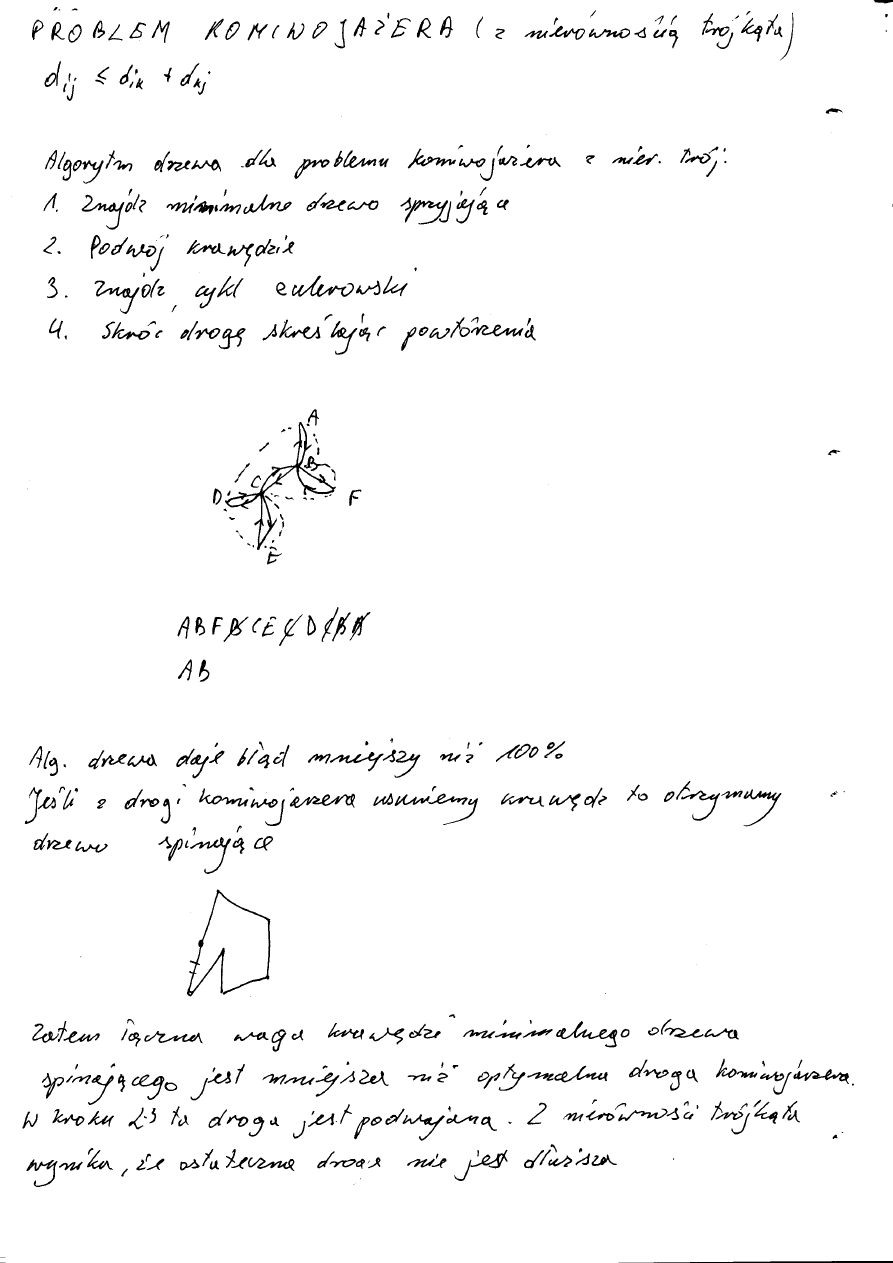 PROBLEM KOMIWOJAŻERA (z nierównością trójkąta)
dij ≤ dik + dkj
Algorytm drzewa dla problemu komiwojażera z nier. trój.
1. Znajdź minimalne drzewo sprzyjające
2. Podwój krawędzie
3. Znajdź cykl eulerowski
4. Skróć drogę skreślając powtórzenia
A
B
C
D
F
E
ABFBCECDCBA
AB
Alg. drzewa daje błąd mniejszy niż 100%
Jeśli z drogi komiwojarzera usuniemy krawędź to otrzymamy
drzewo spinające
Zatem łączna waga krawędzi minimalnego drzewa
spinającego jest mniejsza niż optymalna droga komiwojarzera.
W kroku 2-3 ta droga jest podwajana. Z nierówności trójkąta
wynika, że ostateczna droga nie jest dłuższa